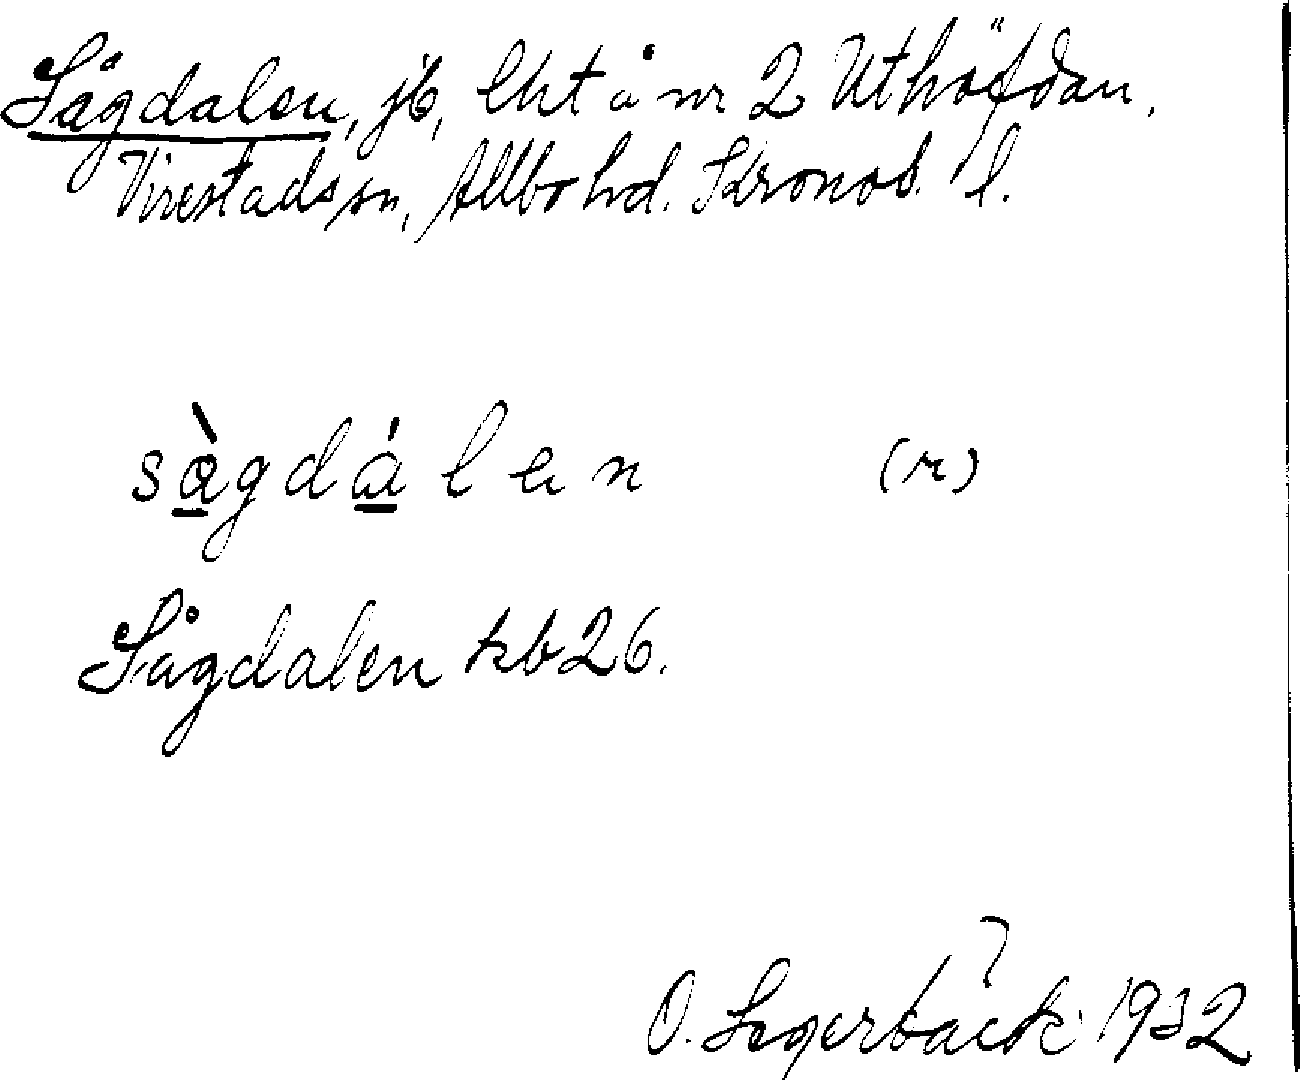 Sågdalen, jb, lht å nr 2 Uthöfdan,
Virestads sn, Allbo hd. Kronob. l.
sàgdálen (r)
Sågdalen kb 26.
O. Segerbäck 1932